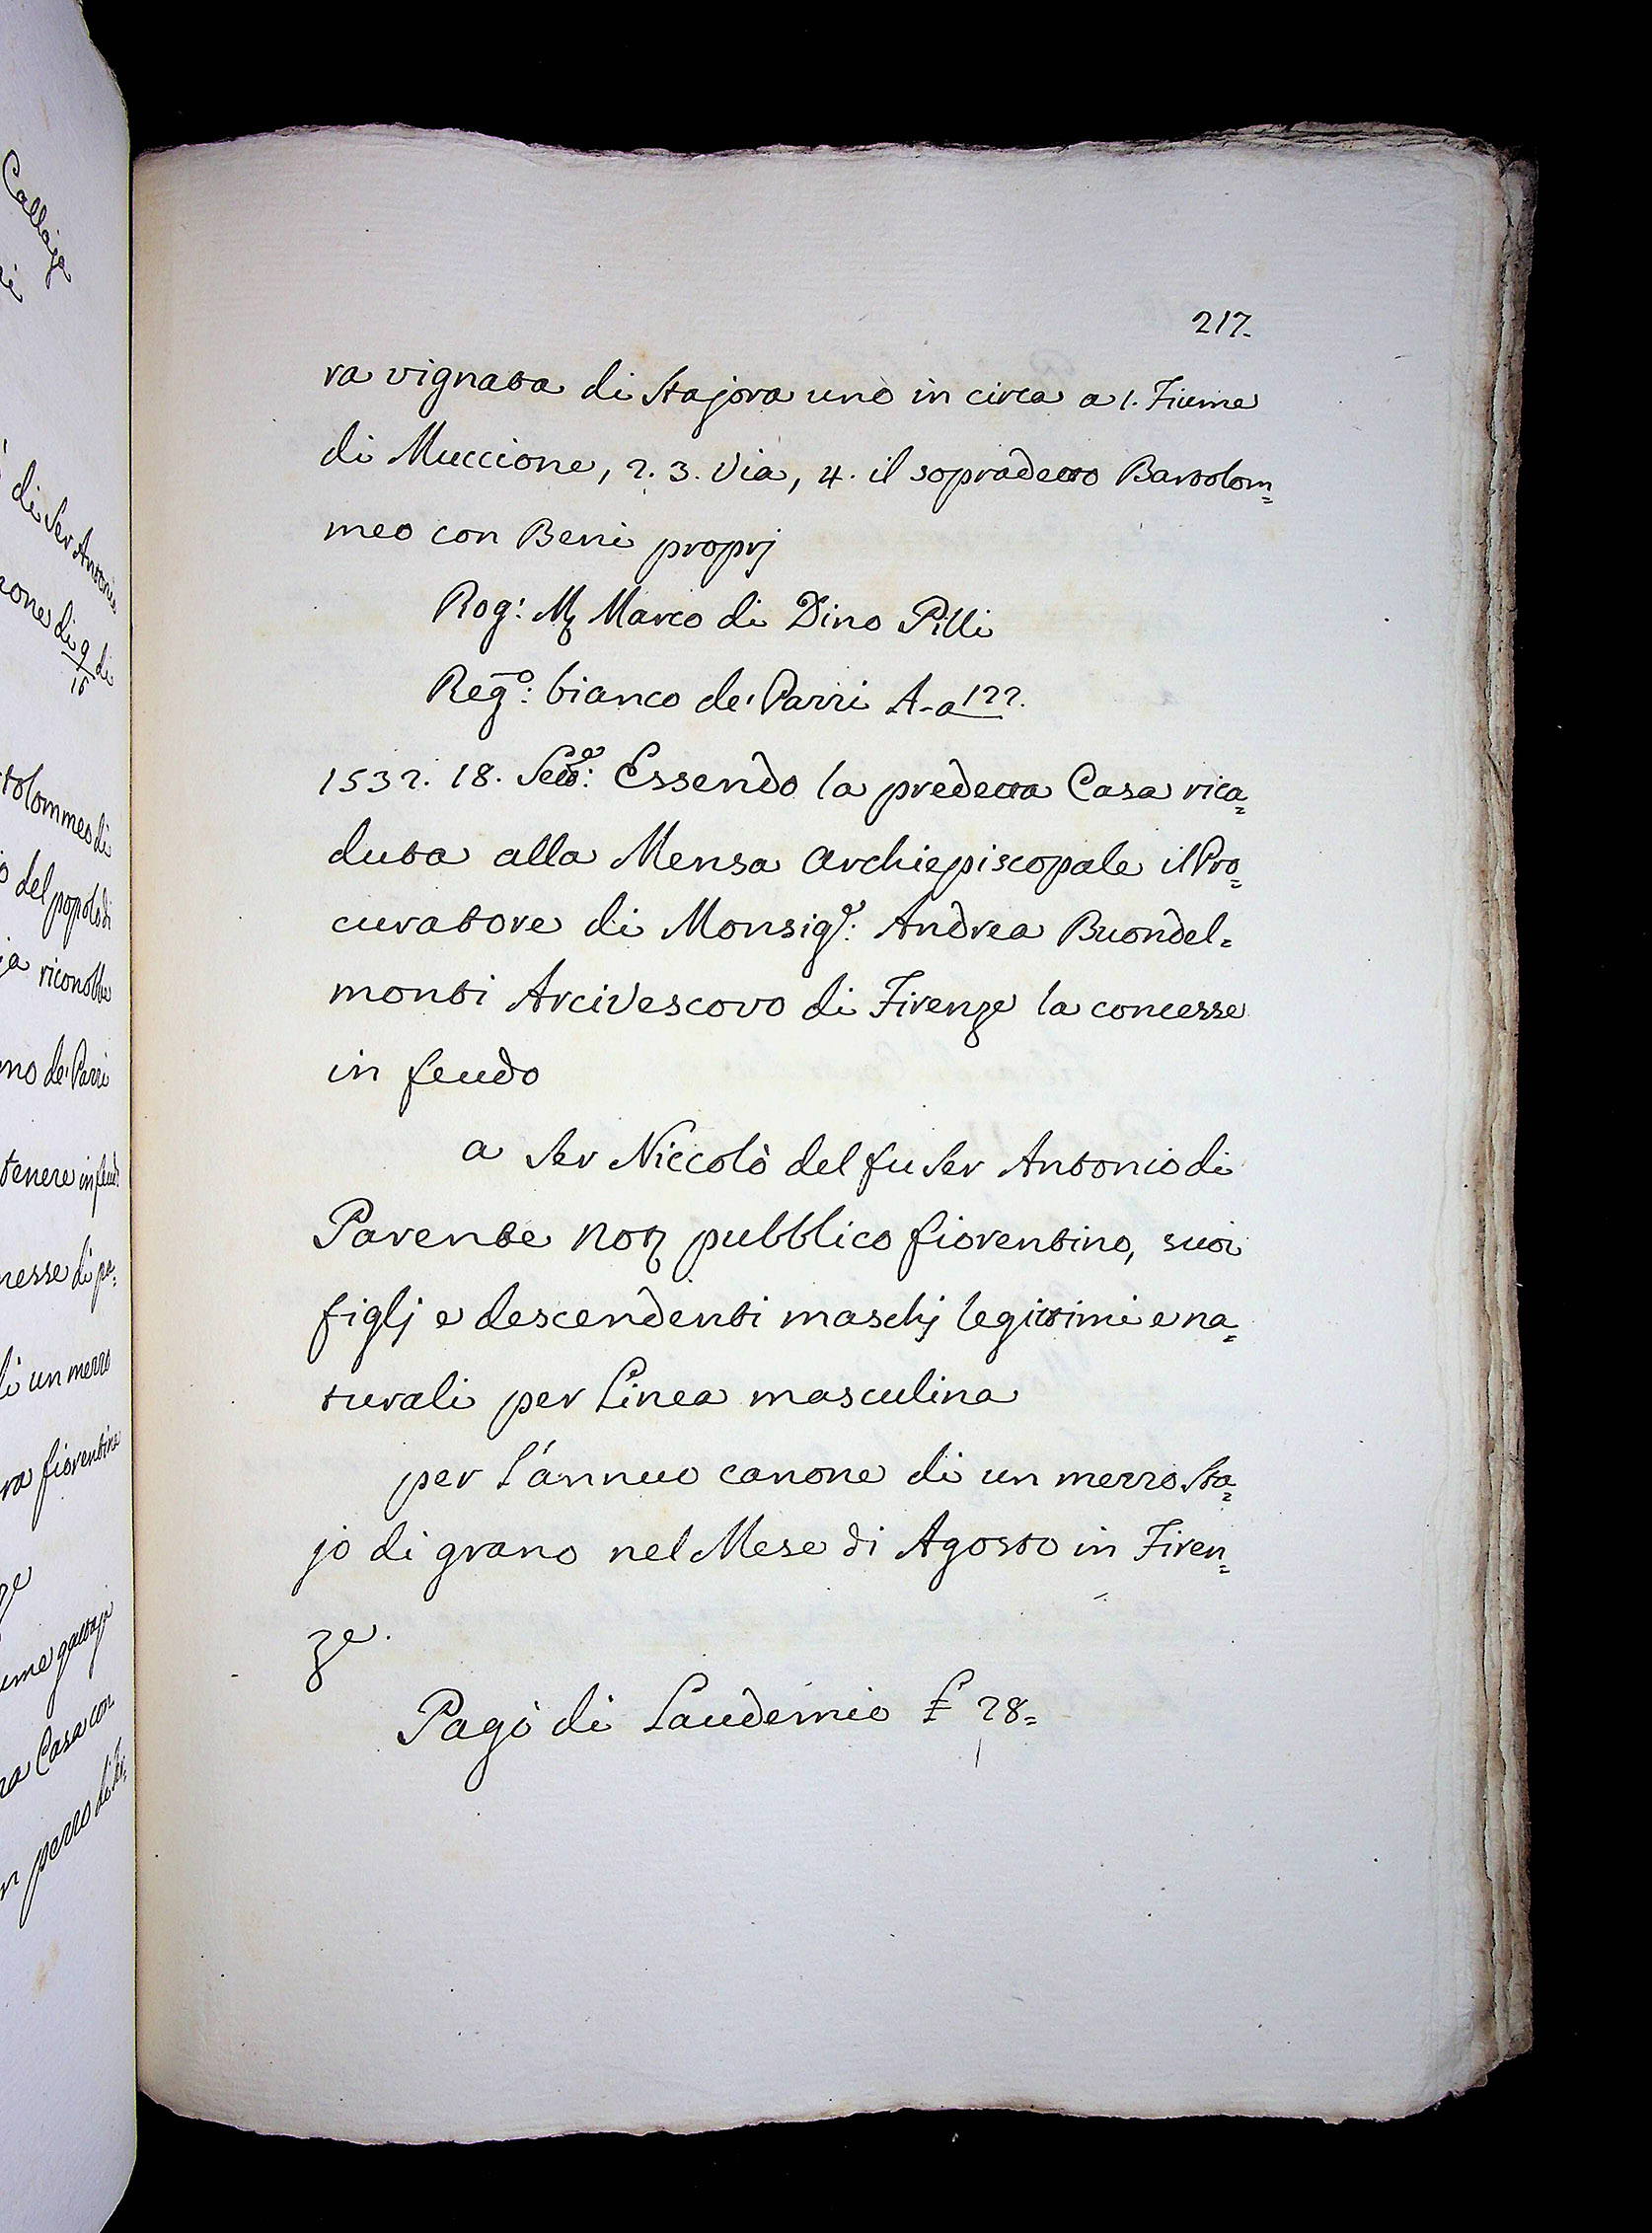 Callaja
di Ser Antonio
none di 9/16 di
tolommeo di
del popolo di
ja riconobbe
no de' Pazzi
tenere in feudo
nesse di pa=
di un mezzo
ra fiorentina
ze
ume gattaja
ra Casa con
n pezzo di
217.
ra vignata di Stajora uno in circa a 1. Fiume
di Muccione, 2. 3. Via, 4. il sopradetto Bartolom=
meo con Beni proprj
Rog: M Marco di Dino Pilli
Reg.o: bianco de' Pazzi A-a 122.
1532. 18. Sett.e: Essendo la predetta Casa rica=
duta alla Mensa Archiepiscopale il Pro=
curatore di Monsig.e: Andrea Buondel=
monti Arcivescovo di Firenze la concesse
in feudo
a Ser Niccolò del fu Ser Antonio di
Parente Not pubblico fiorentino, suoi
figlj e descendenti maschj legittimi e na=
turali per Linea masculina
per l'annuo canone di un mezzo Sta=
jo di grano nel Mese di Agosto in Firen=
ze.
Pagò di Laudemio £ 28=